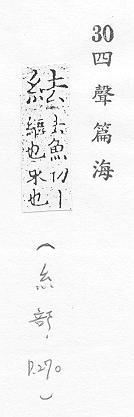 30 四聲篇海
紶 去魚切丨
也求也
(糸部, P.270)